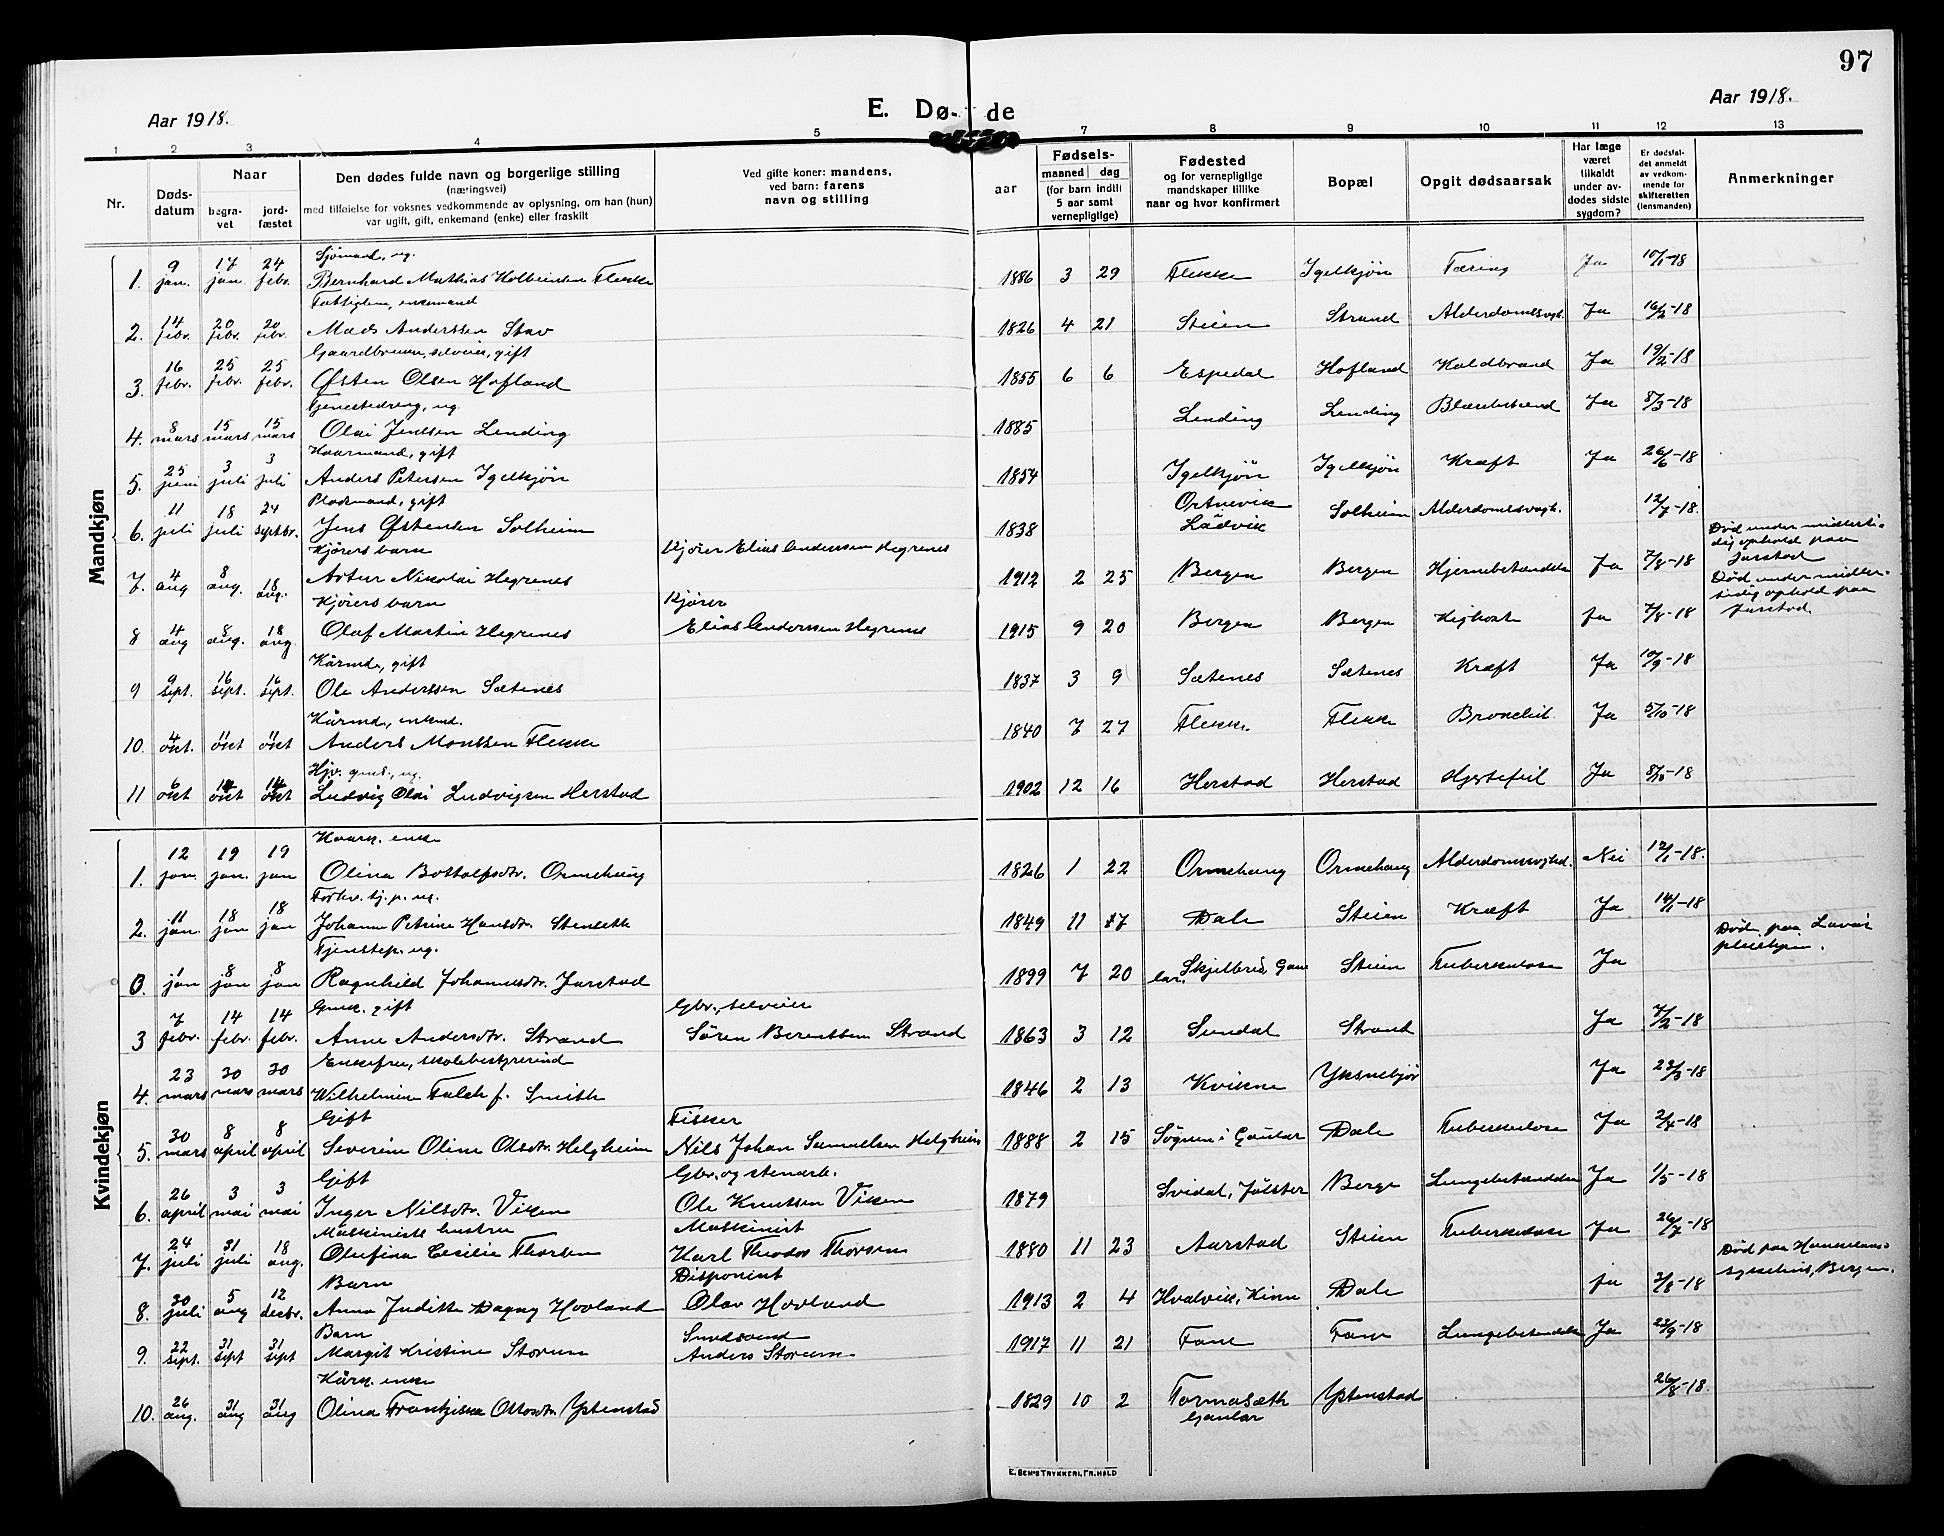 97
Aar 1918.
E. Dø de
Aar 1918.
1 2 3 4 5 7 8 9 10 11 12 13
Nr.
Døds-
datum
Naar
begra-
vet
jord-
fæstet
Den dødes fulde navn og borgerlige stilling
(næringsvei)
med tilføielse for voksnes vedkommende av oplysning, om han (hun)
var ugift, gift, enkemand (enke) eller fraskilt
Ved gifte koner: mandens,
ved barn: farens
navn og stilling
Fødsels-
aar
maaned dag
(for barn indtil
5 aar samt
vernepligtige)
Fødested
og for vernepligtige
mandskaper tillike
naar og hvor konfirmert
Bopæl
Opgit dødsaarsak
Har læge
været
tilkaldt
under av-
dødes sidste
sygdom?
Er dødsfal-
det anmeldt
av vedkom-
mende for
skifteretten
(lensmanden)
Anmerkninger
Mandkjøn
Sjömand, ug.
1. 9 jan. 17 jan 24 febr. Bernhard Mathias Flekke 1886 3 29 Flekke Igelkjøn Tæring Ja 10/1-18
Fattiglem, enkemand
2. 14 febr. 20 febr. 20 febr. Mads Anderssen Stav 1826 4 21 Steien Strand Alderdomsvagh. Ja 16/2-18
Gaardbruker, selveier, gift
3. 16 febr. 25 febr. 25 febr. Østen Olsen Hofland 1855 6 6 Espedal Hofland Koldbrand Ja 19/2-18
Tjenestedreng, ug.
4. 8 mars 15 mars 15 mars Olai Jensen Lending 1885 Lending Lending Ja 8/3-18
Kaarmand, gift
5. 25 juni 3 juli 3 juli Anders Petersen Igelkjøn 1854 Igelkjøn Igelkjøn Kræft Ja 26/6-18
Pladsmand, gift
6. 11 juli 18 juli 24 septbr. Jens Østensen Solheim 1838 Ortnevik Ladvik Solheim Alderdomsvagh. 12/7-18.
Kjørers barn
7. 4 aug 8 aug. 18 aug. Artur Nikolai Hegrenes Kjører Elias Anderssen Hegrenes 1912 2 25 Bergen Bergen Hjernebetændelse Ja 7/8-18 Død under midlerti-
dig ophold paa
Jarstad
Kjørers barn
8 4 aug 8 aug. 18 aug Olaf Martin Hegrenes Kjører
Elias Anderssen Hegrenes 1915 9 20 Bergen Bergen Kighoste Ja 7/8-18 Død under midler-
tidig ophold paa
Jarstad.
Kårmd., gift
9 9 sept. 16 sept. 16 sept. Ole Anderssen Sætenes 1837 3 9 Sætenes Sætenes Kræft Ja 10/9-18
Kårmd., enkmd.
10. 4 okt. 11 okt 11 okt Anders Monssen Flekke 1840 7 27 Flekke. Flekke Ja 5/10-18
ug.
11 6 okt 14 okt 14 okt Ludvig Olai Ludvigsen Herstad 1902 12 16 Herstad Herstad Hjertefeil Ja 8/10-18
Kvindekjøn
Kaark. enke
1. 12 jan. 19 jan. 19 jan Olina Bottolfsdtr. Ormehaug 1826 1 22 Ormehaug Ormehaug Alderdomsvaghed. Nei 12/1-18.
Forhv. tj.p. ug.
2. 11 jan. 18 jan 18 jan Johanne Petrine Hansdtr. Stenseth 1849 11 17 Dale Steien Kræft Ja 14/1-18
Tjenstep. ug.
0. 1 jan 8 jan 8 jan Ragnhild Johannesdtr. Jarstad 1899 7 20 Skjelbred, Gau-
lar. Steien Tuberkulose Ja Død paa Lavik
pleiehjem.
Gmk. gift
3 7 febr. 14 febr. 14 febr. Anne Andersdtr. Strand Gbr., selveier
Søren Berentsen Strand 1863 3 12 Sundal Strand Ja 7/2-18
Enkefru, skolebestyrerind
4. 23 mars 30 mars 30 mars Wilhelmine Falch f. Smith 1846 2 13 Kvikne Yksnebjør Ja 23/3-18
Gift
5. 30 mars 8 april 8 april Severine Oline Olsdtr. Helgheim Fisker
Nils Johan Samuelsen Helgheim 1888 2 15 Søgnen i Gaular Dale Tuberkulose Ja 2/4-18
Gift
6. 26 april 3 mai 3 mai Inger Nilsdtr. Viken Gbr. og stenarb.
Ole Knutsen Viken 1879 Svidal, Jølster Berge Lungebetændelse Ja 1/5-18
Maskinists hustru
7. 24 juli 31 juli 18 aug. Olufina Cecilie Thorsen Maskinist
Karl Theodor Thorsen 1880 11 23 Aarstad Steien Tuberkulose Ja 26/7-18 Død paa Haukelands-
sykehus, Bergen.
Barn
8. 30 juli 5 aug 12 decbr. Anna Judith Dagny Hovland Disponent
Olav Hovland 1913 2 4 Hvalvik i Kinn Dale ja 2/8-18
Barn
9. 22 sept. 31 sept 31 sept Margit Kristine Storum Smedsvend
Anders Storum 1917 11 21 Fane Fane Lungebetændelse Ja 23/9-18
Kårk. enke
10. 26 aug. 31 aug 31 aug Olina Frantziska Ottosdtr. Yttenstad 1829 10 2 Tormasæth
Gaular Yttenstad 26/8-18.
E. SEM'S TRYKKERI, FR. HALD